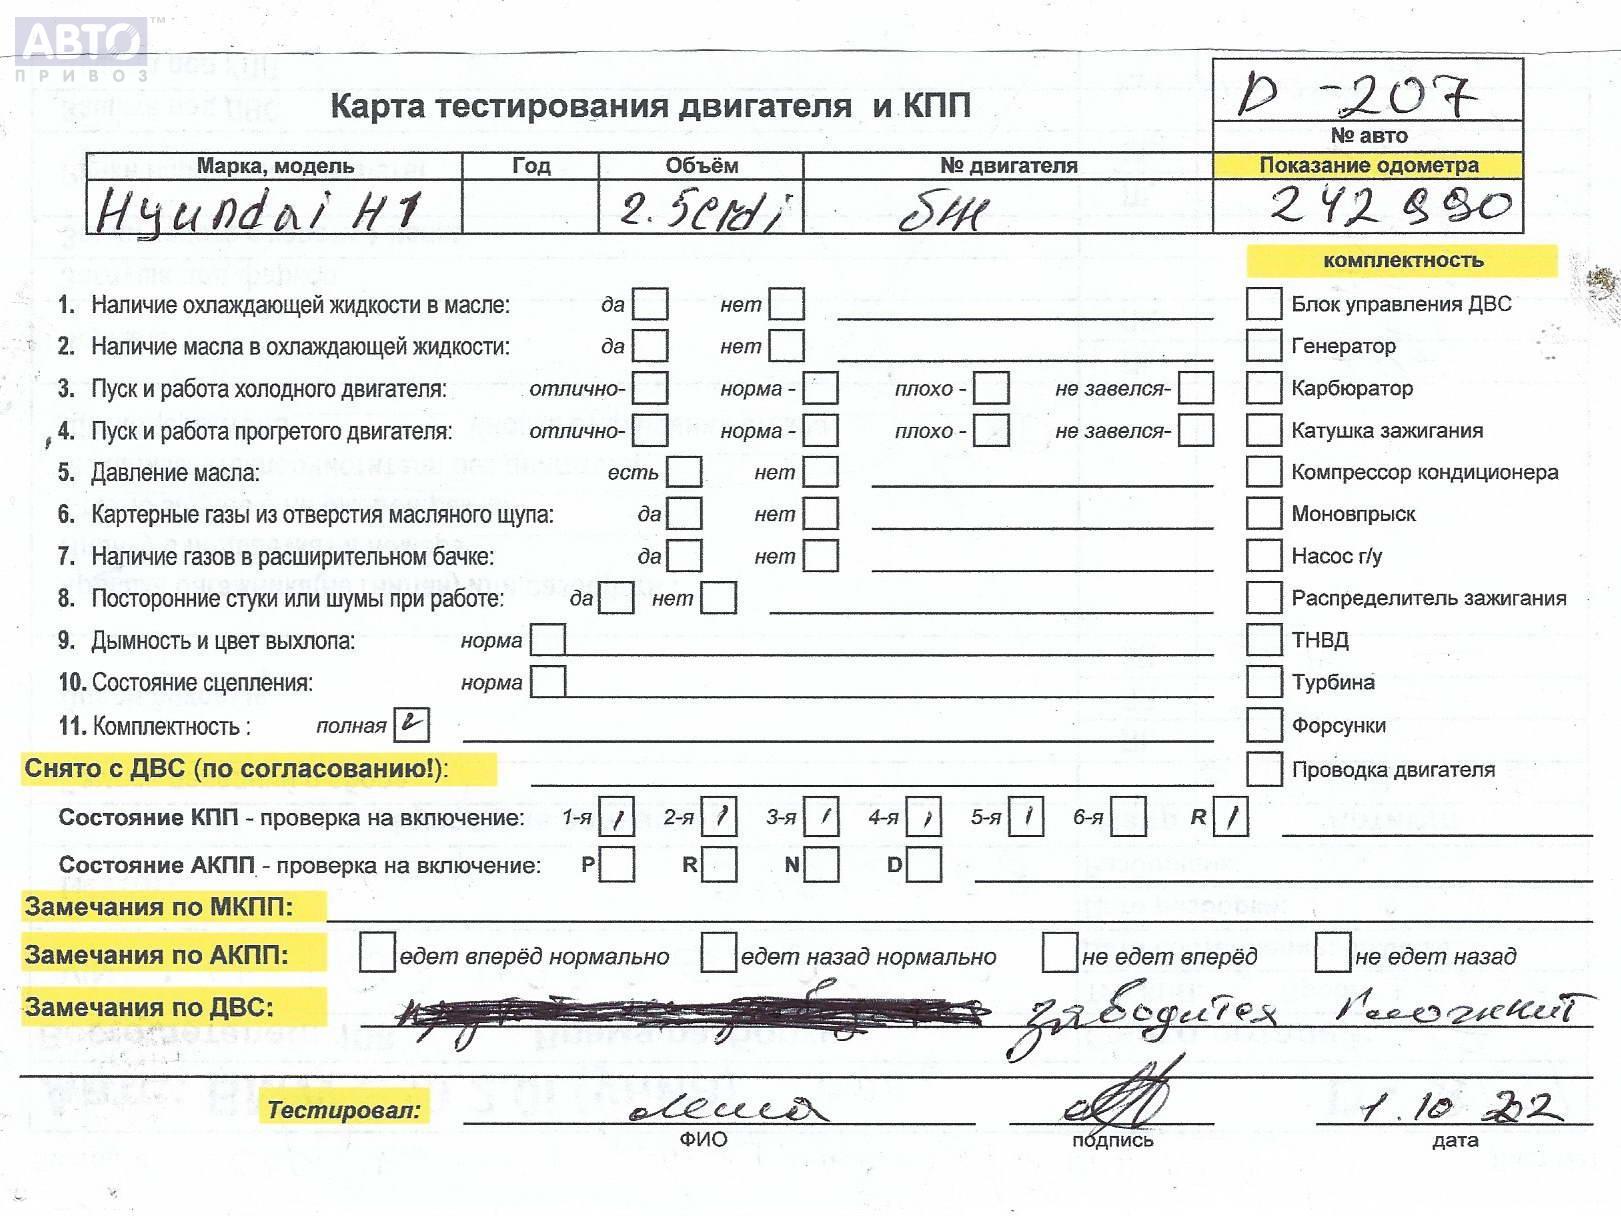 АВТО™
ПРИВОЗ
D-207
Карта тестирования двигателя и КПП
№ авто
Марка, модель Год Объём № двигателя Показание одометра
Hyundai H1 2.5crdi 242990
комплектность
1. Наличие охлаждающей жидкости в масле: да нет Блок управления ДВС
2. Наличие масла в охлаждающей жидкости: да нет Генератор
3. Пуск и работа холодного двигателя: отлично- норма - плохо - не завелся- Карбюратор
4. Пуск и работа прогретого двигателя: отлично- норма - плохо - не завелся- Катушка зажигания
5. Давление масла: есть нет Компрессор кондиционера
6. Картерные газы из отверстия масляного щупа: да нет Моновпрыск
7. Наличие газов в расширительном бачке: да нет Насос г/у
8. Посторонние стуки или шумы при работе: да нет Распределитель зажигания
9. Дымность и цвет выхлопа: норма ТНВД
10. Состояние сцепления: норма Турбина
11. Комплектность : полная Форсунки
Снято с ДВС (по согласованию!): Проводка двигателя
Состояние КПП - проверка на включение: 1-я 2-я 3-я 4-я 5-я 6-я R
Состояние АКПП - проверка на включение: P R N D
Замечания по МКПП:
Замечания по АКПП: едет вперёд нормально едет назад нормально не едет вперёд не едет назад
Замечания по ДВС: заводится
Тестировал: Леша 1.10
ФИО подпись дата